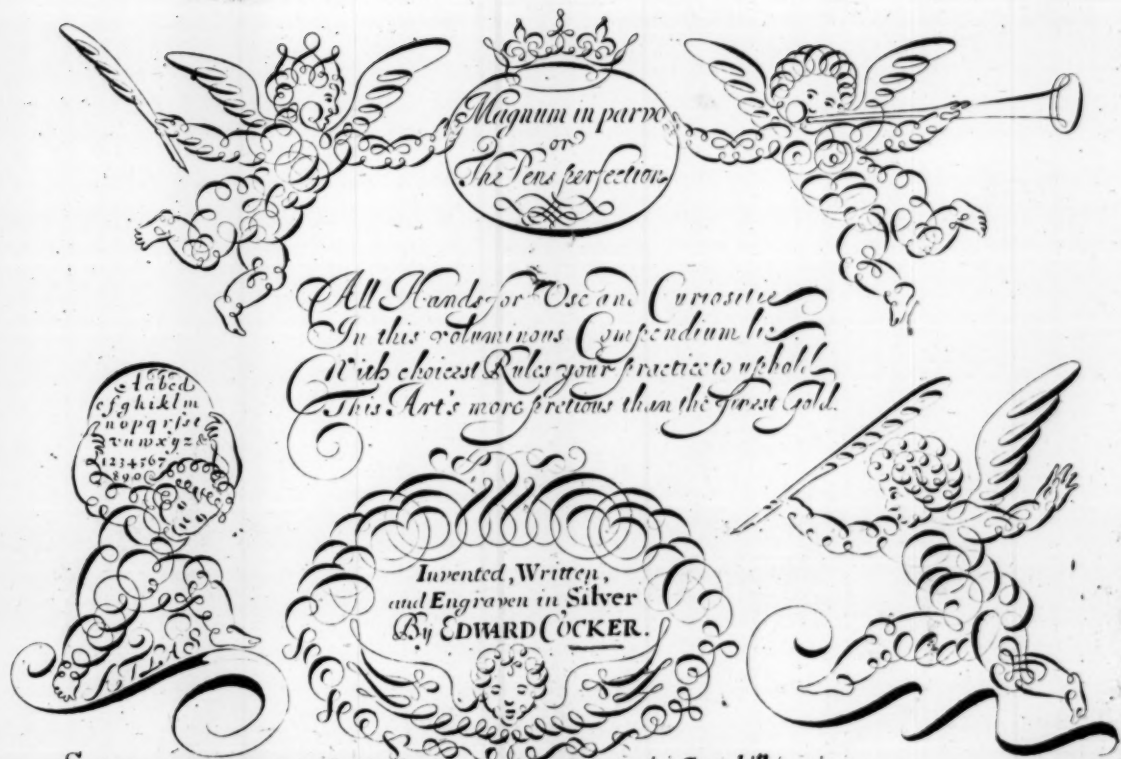 Magnum in parvo
or
The Pens perfection.
All Hands for Use and Curiositie
In this voluminous Compendium lie
With choicest Rules your practice to uphold
This Art's more pretious than the finest Gold.
A a b c d
e f g h i k l m
n o p q r ſ s t
v u w x y z &
1 2 3 4 5 6 7
8 9 0
ATLAS
Invented, Written,
and Engraven in Silver
By EDWARD COCKER.